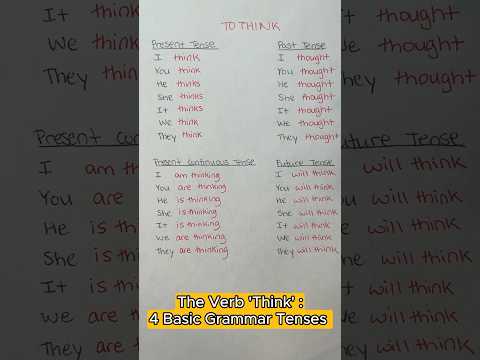 TO THINK
Present Tense
I think
You think
He thinks
She thinks
It thinks
We think
They think
Past Tense
I thought
You thought
He thought
She thought
It thought
We thought
They thought
Present Continuous Tense
I am thinking
You are thinking
He is thinking
She is thinking
It is thinking
We are thinking
They are thinking
Future Tense
I will think
You will think
He will think
She will think
It will think
We will think
They will think
The Verb 'Think' :
4 Basic Grammar Tenses